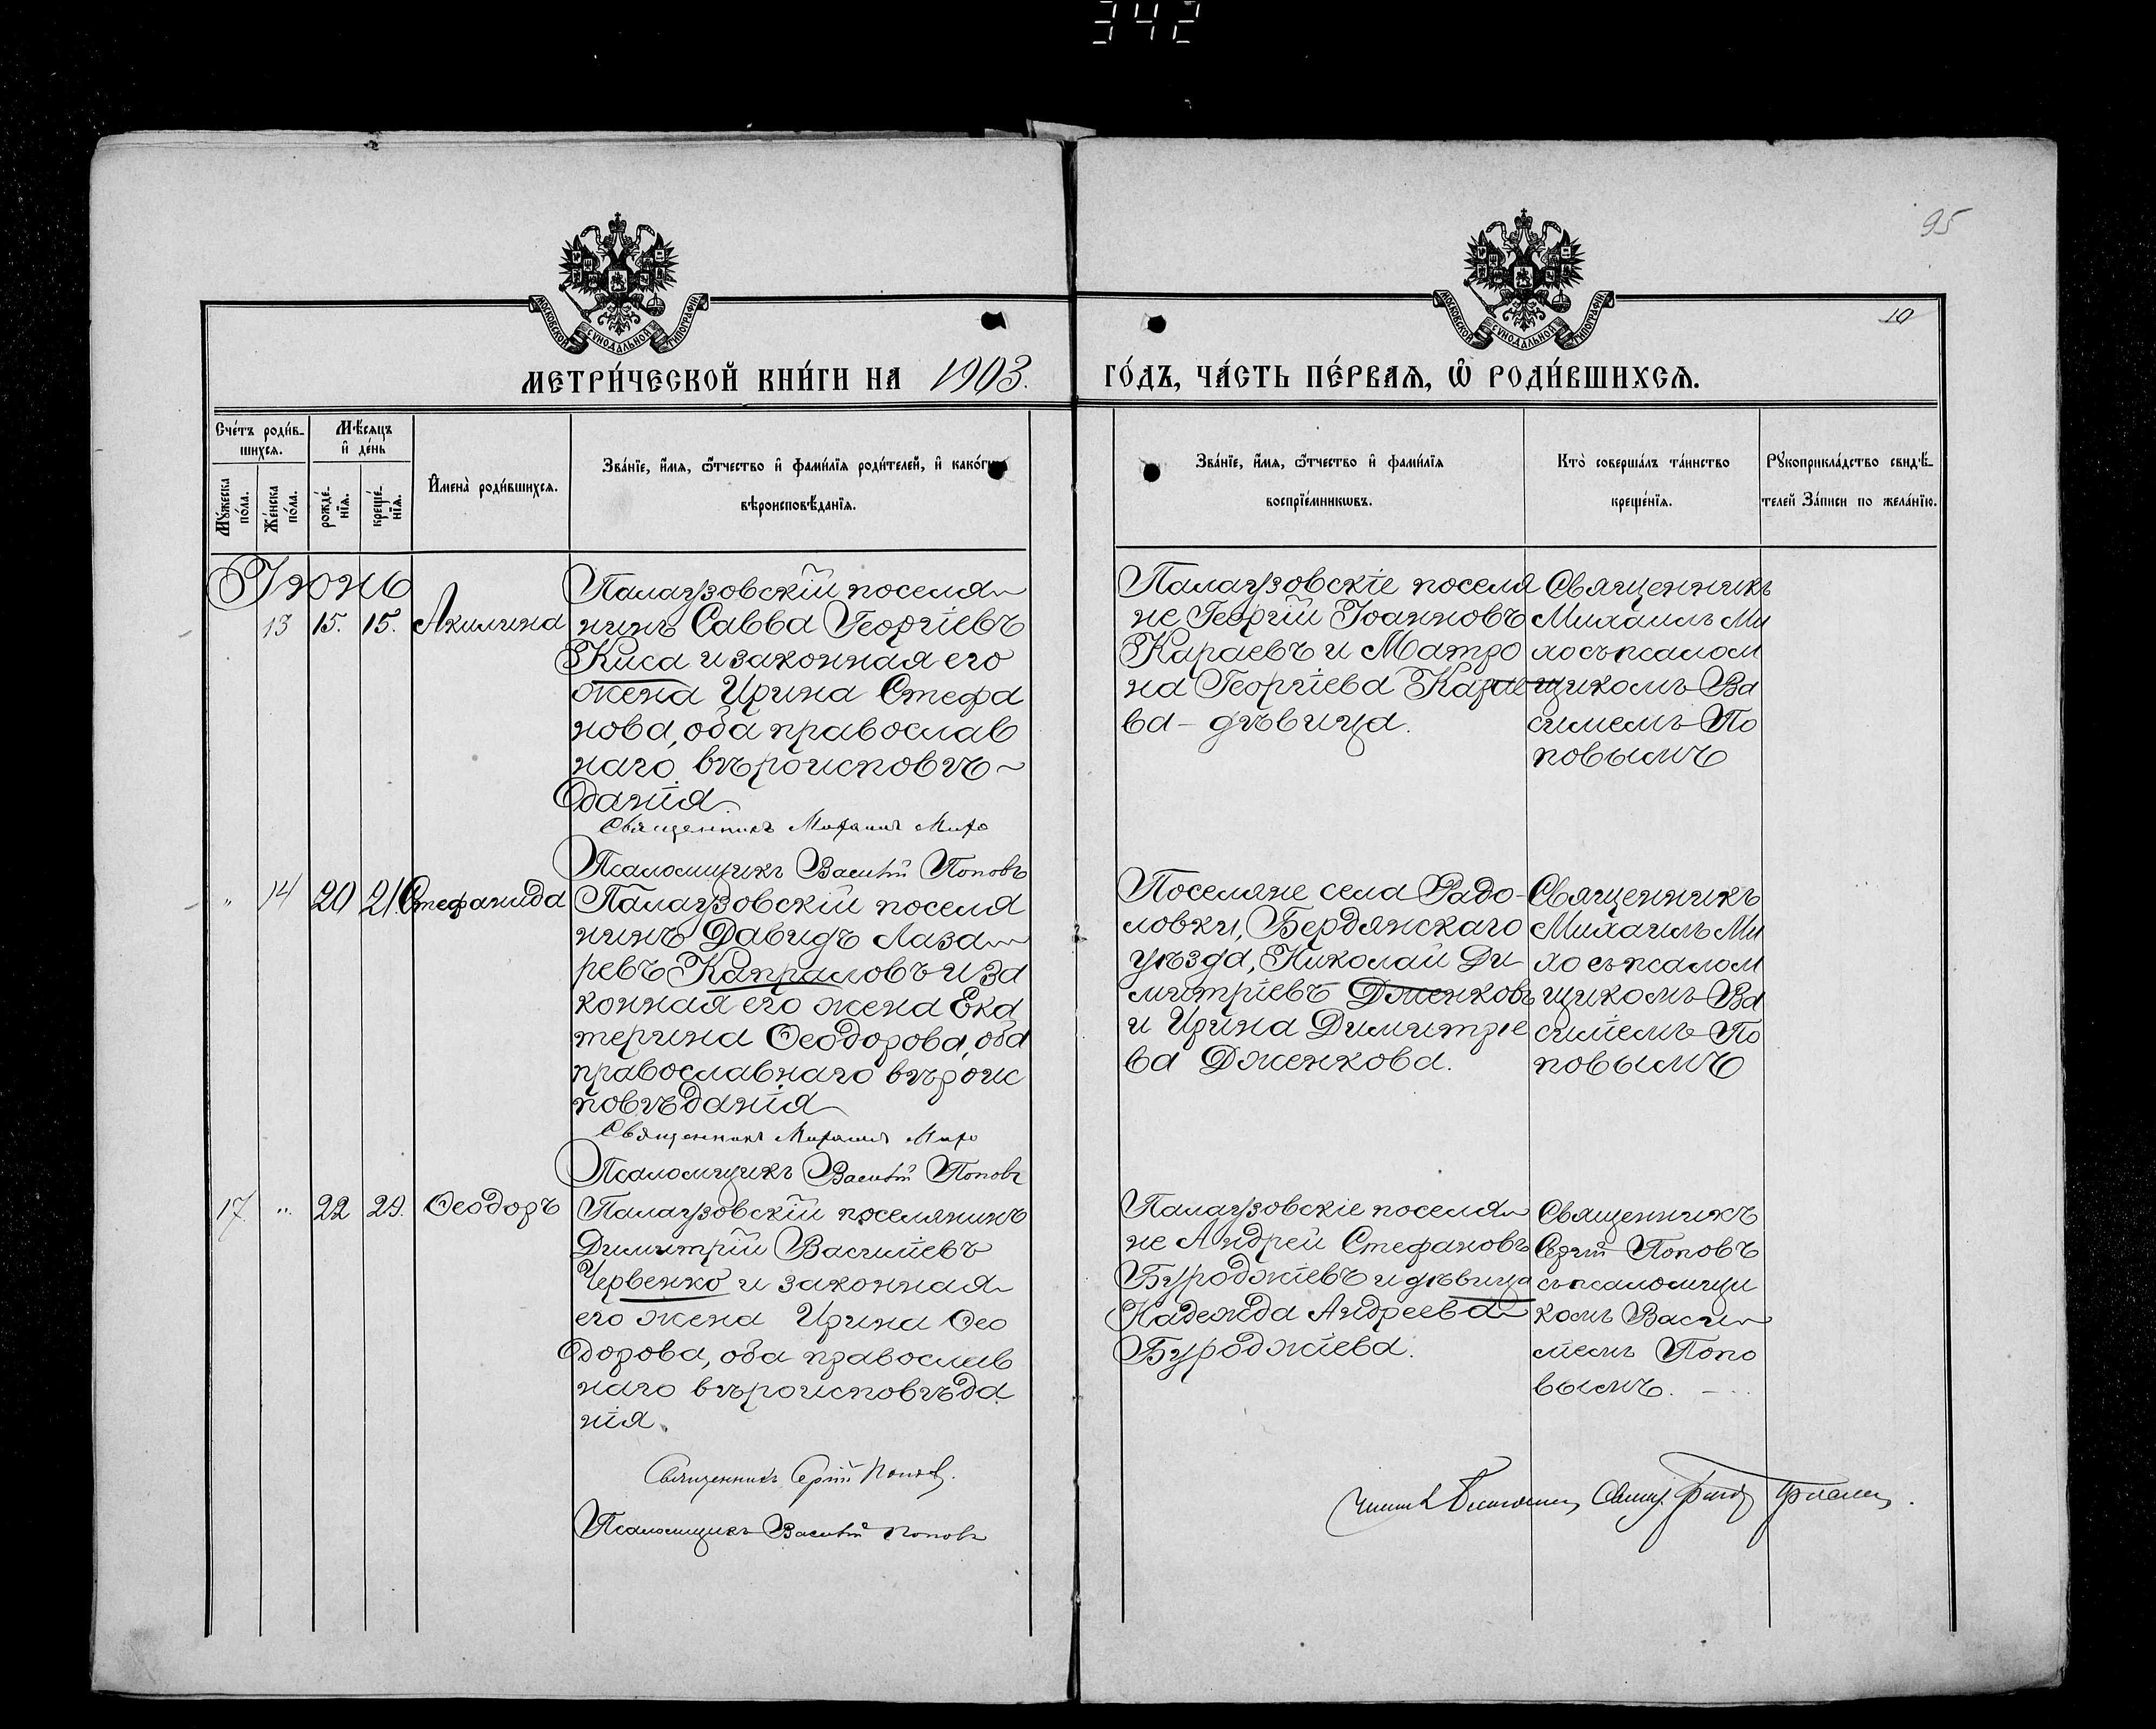 342
95
10
МОСКОВСКОЙ СУНОДАЛЬНОЙ ТИПОГРАФІИ
МОСКОВСКОЙ СУНОДАЛЬНОЙ ТИПОГРАФІИ
МЕТРИ́ЧЕСКОЙ КНИ́ГИ НА 1903. ГО́ДЪ, ЧА́СТЬ ПЕ́РВАѦ, Ѡ҆ РОДИ́ВШИХСѦ.
Сче́тъ роди́в-
шихсѧ.
Мѣ́сѧцъ
и҆ де́нь
Мꙋ́жеска
по́ла.
Же́нска
по́ла.
рожде́-
нїѧ.
креще́-
нїѧ.
И҆мена̀ роди́вшихсѧ.
Зва́нїе, и҆́мѧ, ѻ҆́тчество и҆ фами́лїѧ роди́телей, и҆ како́гѡ
вѣроисповѣ́данїѧ.
Зва́нїе, и҆́мѧ, ѻ҆́тчество и҆ фами́лїѧ
воспрїе́мникѡвъ.
Кто̀ соверша́лъ та́инство
креще́нїѧ.
Рꙋкоприкла́дство свидѣ́-
телей За́писи по жела́нїю.
Іюнь
13 15. 15. Акилина
Палаузовскій поселя
нинъ Савва Георгіевъ
Киса и законная его
жена Ирина Стефа
нова, оба православ
наго вѣроисповѣ-
данія.
Священникъ Михаилъ Михо
Псаломщикъ Василій Поповъ
Палаузовскіе поселя
не Георгій Іоанновъ
Караевъ и Матро
на Георгіева Карае
ва - дѣвица.
Священникъ
Михаилъ Ми
хо съ псалом
щикомъ Ва
силіемъ По
повымъ
" 14 20 21. Стефанида
Палаузовскій поселя
нинъ Давидъ Лаза
ревъ Капраловъ и за
конная его жена Ека
терина Ѳеодорова, оба
православнаго вѣроис
повѣданія
Священникъ Михаилъ Михо
Псаломщикъ Василій Поповъ
Поселяне села Радо-
ловки, Бердянскаго
уѣзда, Николай Ди
митріевъ Дженковъ
и Ирина Димитріе
ва Дженкова.
Священникъ
Михаилъ Ми
хо съ псалом
щикомъ Ва
силіемъ По
повымъ
17. " 22 29. Ѳеодоръ
Палаузовскій поселянинъ
Димитрій Василіевъ
Червенко и законная
его жена Ирина Ѳео
дорова, оба православ
наго вѣроисповѣда
нія.
Священникъ Сергій Поповъ.
Псаломщикъ Василій Поповъ
Палаузовскіе поселя
не Андрей Стефановъ
Буроджіевъ и дѣвица
Надежда Андреева
Буроджіева.
Священникъ
Сергій Поповъ
съ псаломщи
комъ Васи
ліемъ Попо
вымъ.